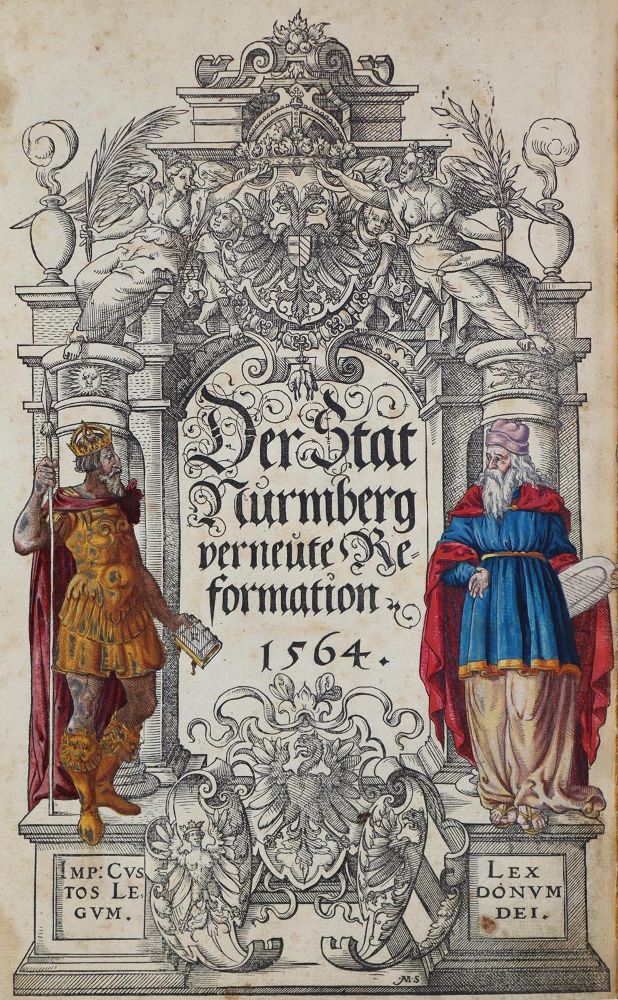 Der Stat
Nurmberg
verneute Re=
formation
1564.
IMP: CVS
TOS LE.
GVM.
LEX
DONVM
DEI.